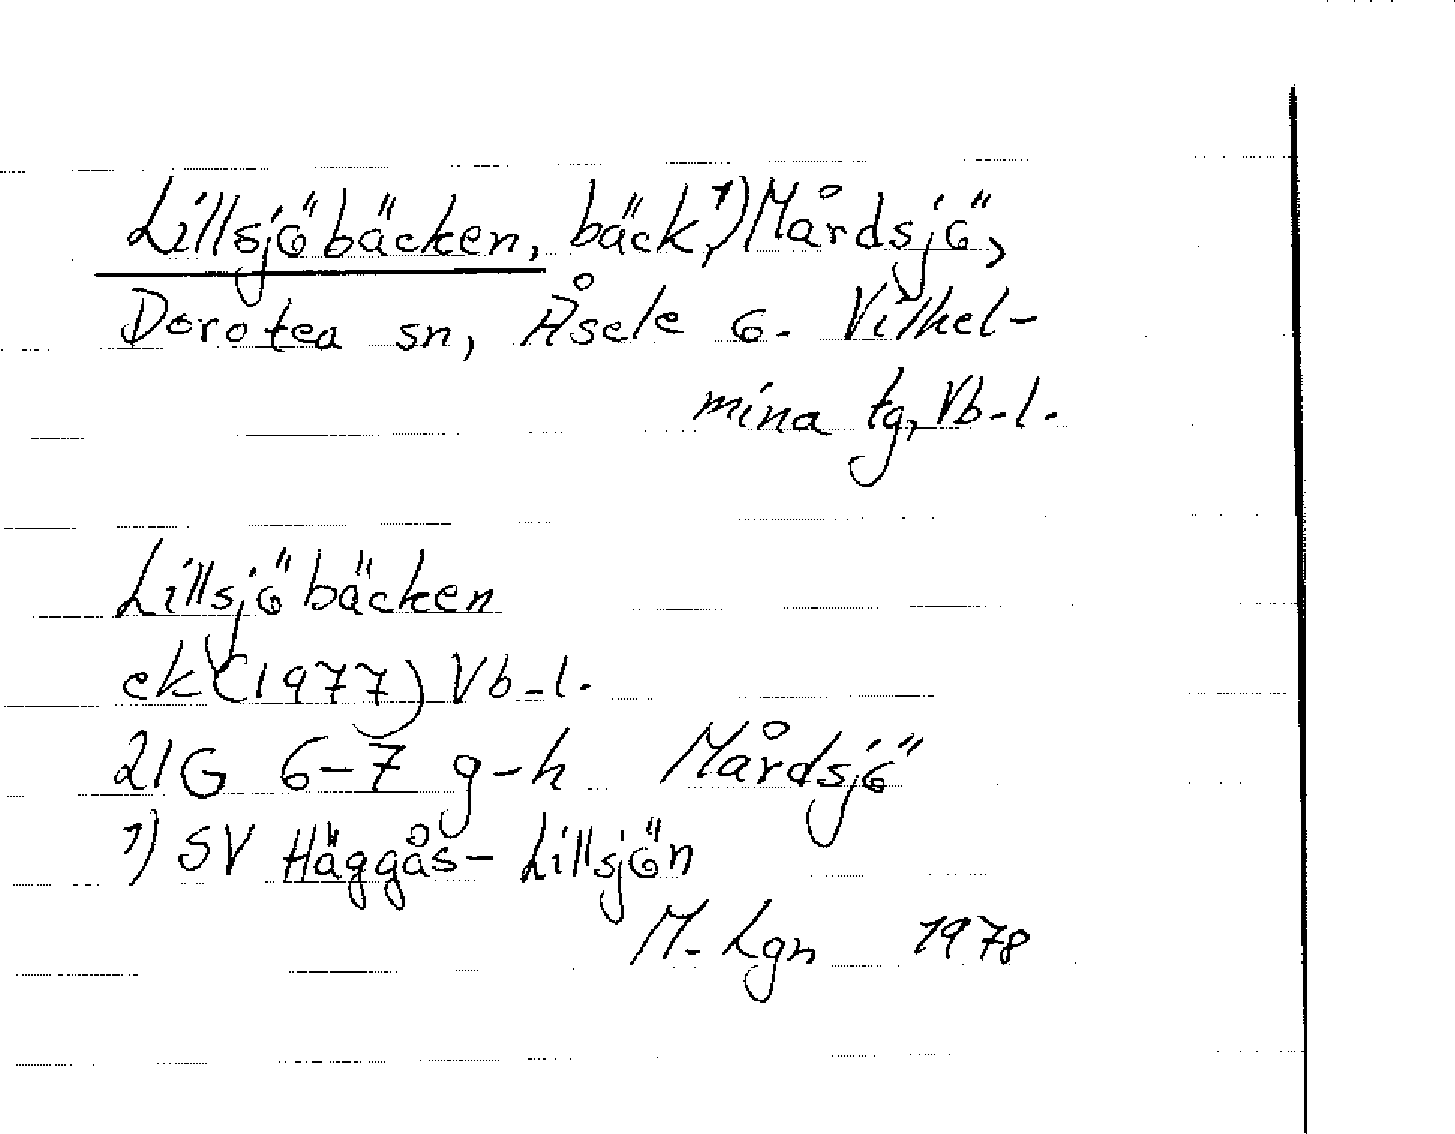 Lillsjöbäcken, bäck,¹) Mårdsjö,
Dorotea sn, Åsele o. Vilhel-
mina tg, Vb-l.
Lillsjöbäcken
ek (1977) Vb-l.
21G 6-7 g-h Mårdsjö
1) SV Häggås-Lillsjön
M. Lgn 1978